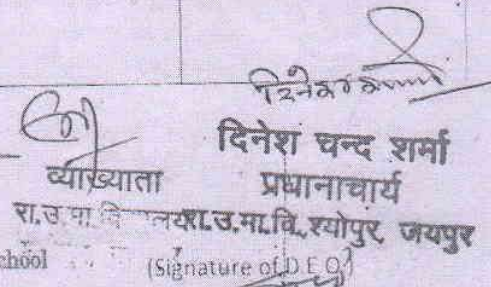 दिनेश चन्द शर्मा
व्याख्याता प्रधानाचार्य
रा.उ.मा. रा.उ.मा.वि., श्योपुर, जयपुर
chool (Signature of D.E.O.)